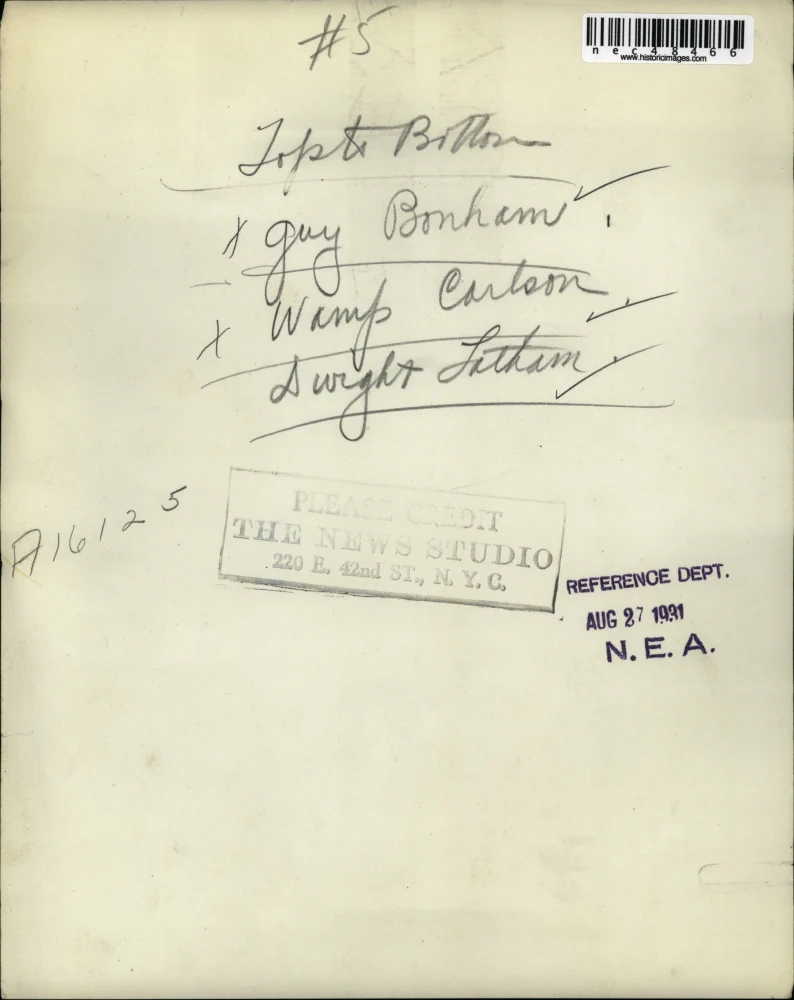 #5
nec48466
www.historicimages.com
Top to Bottom
x Guy Bonham
x Wamp Carlson
Dwight Latham
A16125
PLEASE CREDIT
THE NEWS STUDIO
220 E. 42nd ST., N. Y. C.
REFERENCE DEPT.
AUG 27 1931
N. E. A.